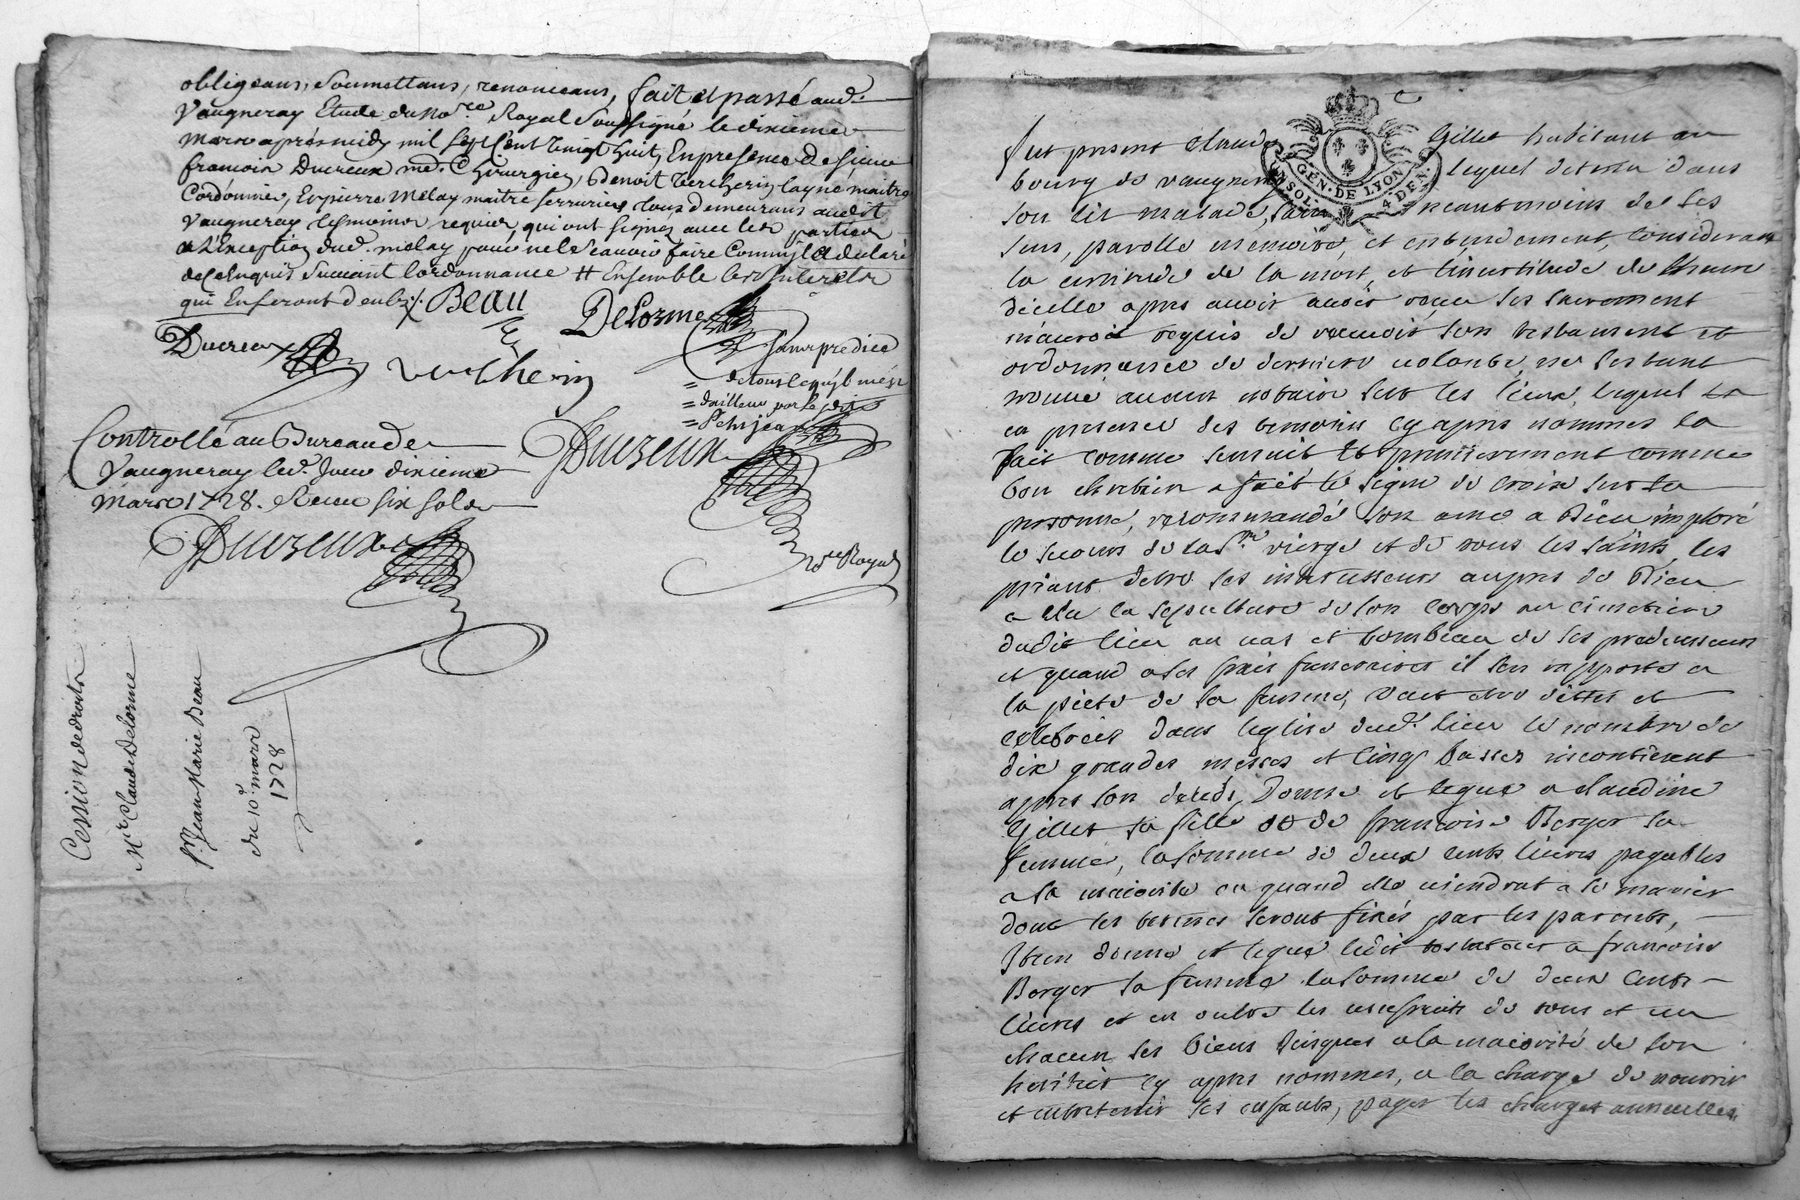 obligeans, soumettans, renonceans, fait et passé aud.
Vaugneray Etude du No.re Royal Soussigné le dixieme
mars apres midy mil sept Cent vingt huit, En presence de sieur
francois Ducreux md. Chirurgien, Benoit Vercherin layné maitre
Cordonnier, Et pierre Melay maitre serrurier tous demeurans audit
Vaugneray, tesmoins requis, qui ont signez avec les parties
a L'exception dud. melay pour ne le scavoir faire Comm'il a declaré
de ce Enquis suivant l'ordonnance # Ensemble les Interets
qui En seront deubz ⁒ Beau Delorme
Ducreux Vercherin
sans prejudice
= de tous
= dailleur par le
=
Controllé au Bureau de
Vaugneray led. Jour dixieme
mars 1728. Receu six sols
Ducreux
Ducreux
Re Royal
Cession de droits
Mre Claude Delorme
Sr Jean Marie Beau
du 10e mars
1728
GEN. DE LYON
EN SOL. 4 DEN.
fut present Claude Gillet habitant au
bourg de vaugneray lequel detenu dans
son lit malade, sain neantmoins de ses
sens, parolle memoire, et entendement, considerant
la certitude de la mort, et lincertitude de lheure
dicelle apres avoir avoir receu ses sacrement
m'auroit requis de recevoir son testament et
ordonnance de derniere volonté, ne sestant
trouvé aucun notaire sur les lieux, lequel
en presence des temoins cy apres nommes la
fait comme sensuit Et premierement comme
bon chretien a fait le signe de croix sur sa
personne, recommandé son ame a Dieu imploré
le secours de la Ste vierge et de tous les saints, les
priant detre ses intercesseurs aupres de Dieu
a elu la sepulture de son corps au cimetiere
dudit lieu au vas et tombeau de ses predecesseurs
et quand a ses frais funeraires il sen rapporte a
la pieté de sa femme, veut etre dittes et
celebrées dans leglise dud. lieu le nombre de
dix grandes messes et cinq basses incontinent
apres son deceds, Donne et legue a claudine
Gillet sa fille et de francoise Berger sa
femme, la somme de deux cents livres payables
a sa maiorité ou quand elle viendrat a se marier
dont les termes seront fixés par les parents,
Item donne et legue ledit testateur a francoise
Berger sa femme la somme de deux cents
livres et en outre les usufruits de tous et un
chacun ses biens Jusques a la maiorité de son
heritier cy apres nommes, a la charge de nourrir
et entretenir ses enfants, payer les charges annuelles